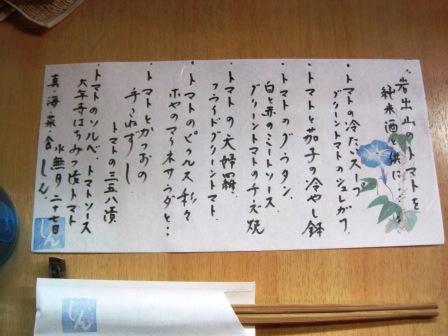 岩出山のトマトを
純米酒と供に
・トマトの冷たいスープ
グリーントマトのジュレがけ
・トマトと茄子の冷やし鉢
・トマトのグラタン
白と赤のミートソース
グリーントマトのチーズ焼
・トマトの天婦羅
フライドグリーントマト
・トマトのピクルス 彩々
ホヤのマリネサラダと…
・トマトとかつおの
手こねずし
トマトの三五八漬
・トマトのソルベ、トマトソース
大年寺はちみつ漬トマト
水無月 二十七日
真・海・菜・食 しん
しん
しん